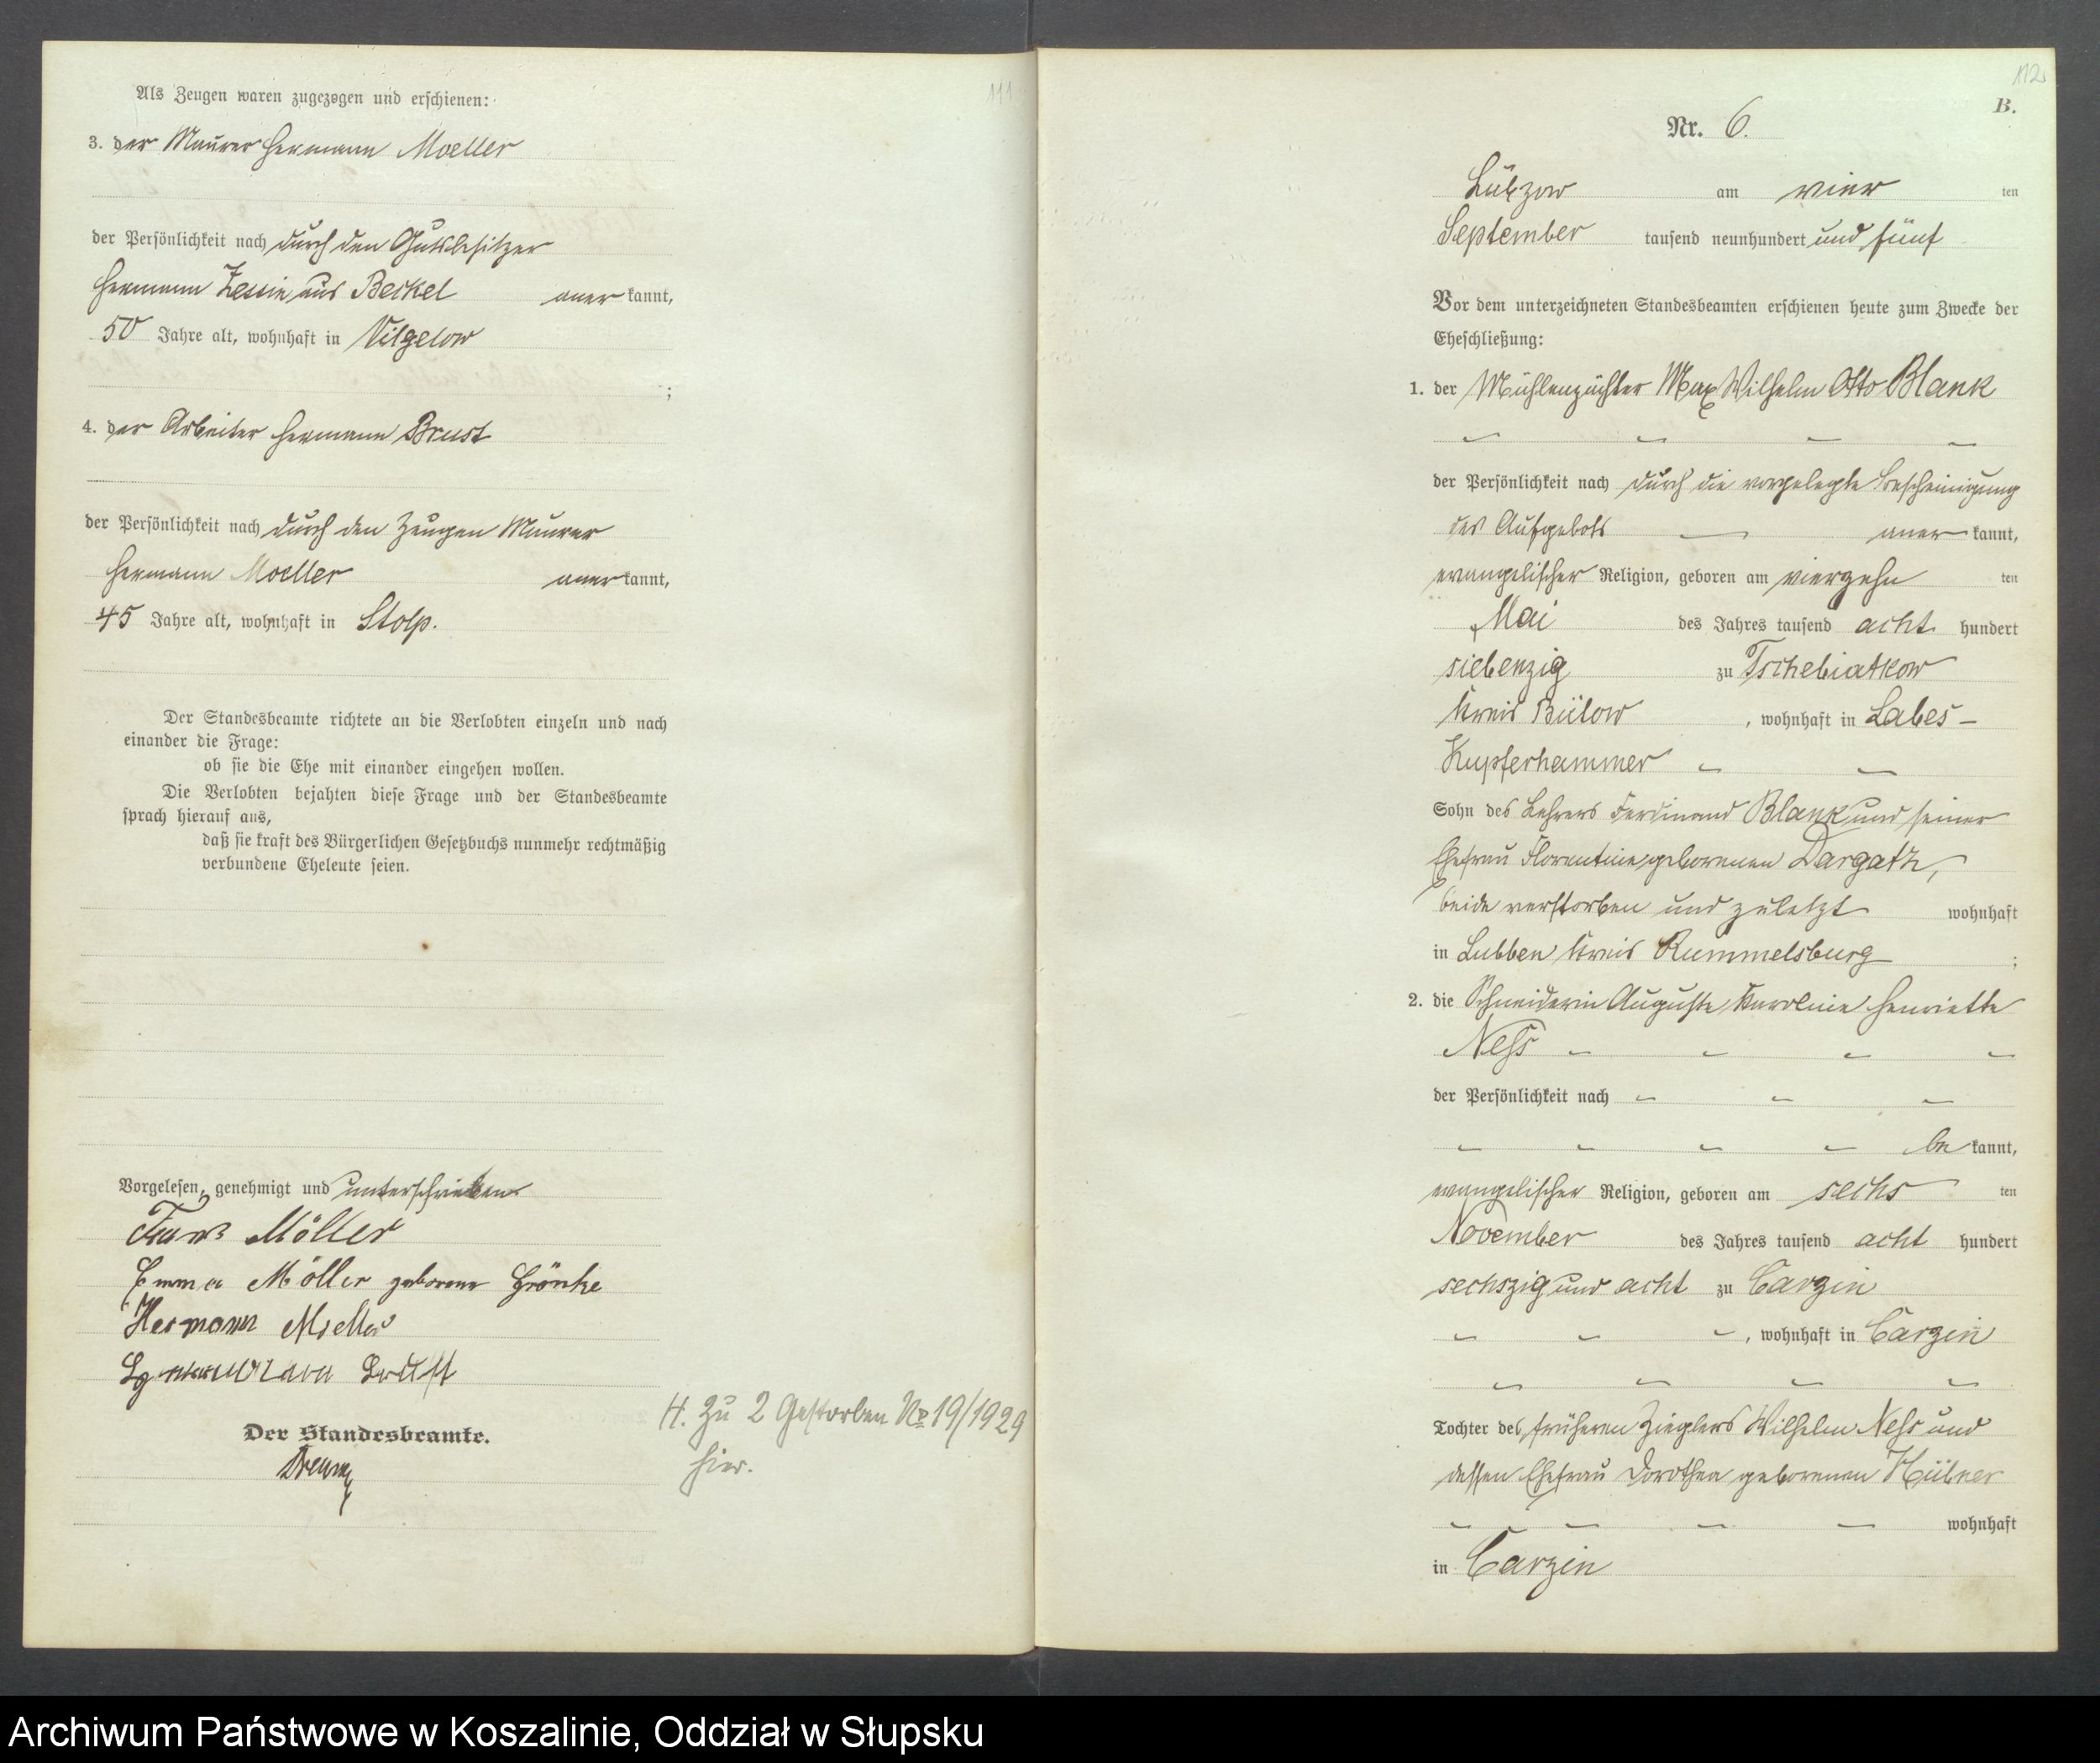 111
Als Zeugen waren zugezogen und erschienen:
3. der Maurer Hermann Moeller
der Persönlichkeit nach durch den Gutsbesitzer
Hermann Zessin aus Beckel anerkannt,
50 Jahre alt, wohnhaft in Vilgelow
;
4. der Arbeiter Hermann Brust
der Persönlichkeit nach durch den Zeugen Maurer
Hermann Moeller anerkannt,
45 Jahre alt, wohnhaft in Stolp.
Der Standesbeamte richtete an die Verlobten einzeln und nach
einander die Frage:
ob sie die Ehe mit einander eingehen wollen.
Die Verlobten bejahten diese Frage und der Standesbeamte
sprach hierauf aus,
daß sie kraft des Bürgerlichen Gesetzbuchs nunmehr rechtmäßig
verbundene Eheleute seien.
Vorgelesen, genehmigt und unterschrieben
Franz Möller
Emma Möller geborene Grönke
Hermann Moeller
Brust
Der Standesbeamte.
H. zu 2 Gestorben No 19/1929
hier.
112
B.
Nr. 6.
Lübzow am vier ten
September tausend neunhundert und fünf
Vor dem unterzeichneten Standesbeamten erschienen heute zum Zwecke der
Eheschließung:
1. der Mühlenpächter Max Wilhelm Otto Blank
der Persönlichkeit nach durch die vorgelegte Bescheinigung
des Aufgebots anerkannt,
evangelischer Religion, geboren am vierzehn ten
Mai des Jahres tausend acht hundert
siebenzig zu Tschebiatkow
Kreis Bütow, wohnhaft in Labes-
Kupferhammer
Sohn des Lehrers Ferdinand Blank und seiner
Ehefrau Florentine, geborenen Dargatz,
beide verstorben und zuletzt wohnhaft
in Lubben Kreis Rummelsburg ;
2. die Schneiderin Auguste Karoline Henriette
Neß
der Persönlichkeit nach
bekannt,
evangelischer Religion, geboren am sechs ten
November des Jahres tausend acht hundert
sechszig und acht zu Carzin
, wohnhaft in Carzin
Tochter des früheren Zieglers Wilhelm Neß und
dessen Ehefrau Dorothea geborenen Hübner
wohnhaft
in Carzin
Archiwum Państwowe w Koszalinie, Oddział w Słupsku